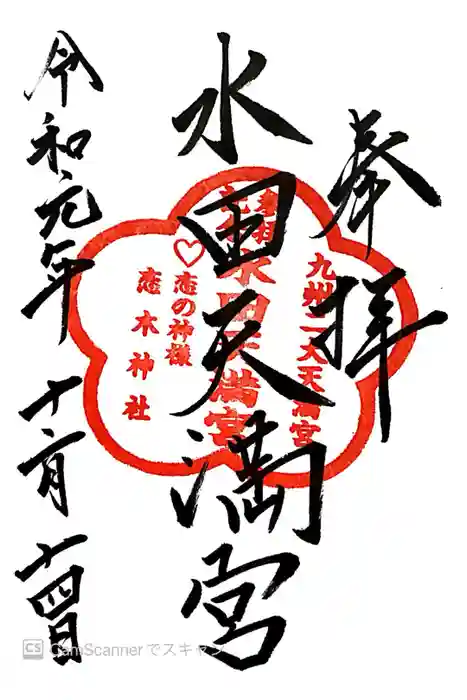 奉拝
九州二大天満宮
水田天満宮
水田天満宮
♡恋の神様
恋木神社
令和元年 十二月 十四日
CS CamScannerでスキャン